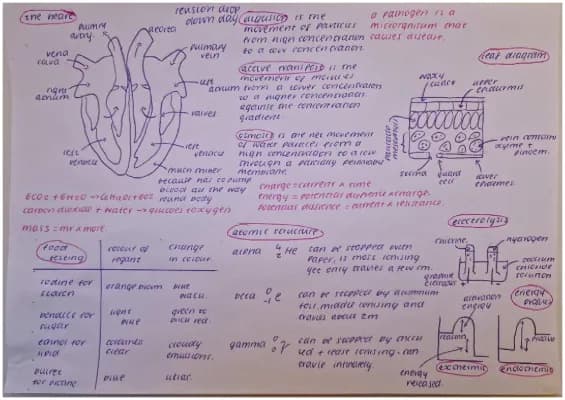 the heart
tension drop
down day
pulmary
artory.
aeorta
vena
cava
pulmary
vein
right
atrium
left
atrium
valves
left
ventricle
much thicker
because has to pump
blood all the way
round body
diffusion is the
movement of particles
from high concentration
to a low concentration.
active transport is the
movement of molecules
from a lower concentration
to a higher concentration
against the concentration
gradient.
osmosis is are net movement
of water particles from a
high concentration to a low
through a partially permeable
membrane.
a pathogen is a
microrganism that
causes disease.
leaf diagram
waxy
cuticle
upper
endermis
palisade
mesophyll
vein contains
xylme +
phloem.
stoma
guard
cell
lower
endermis
charge = current x time
energy = potential diference x charge.
potential difference = current x resistance.
6CO2 + 6H2O → C6H12O6 + 6O2
carbon dioxide + water → glucose + oxygen
mass = mr x mole
food
testing
colour of
regent
change
in colour.
iodine for
starch
orange brown
blue
black.
benedicts for
sugar
light
blue
green to
brick red.
ethanol for
lipid
colourless
clear
cloudy
emulsions.
buiret
for protine
blue
lilac.
atomic structure
alpha 4 2 He can be stopped even
Paper, is most ionising
yet only travles a few cm.
beta 0 -1 e can be stopped by aluminum
foil, middle ionising and
travels about 2m
gamma 0 0 γ can be stopped by thick
led + least ionising. can
travle infinately.
electrolysis
chlorine.
hydrogen
graphite
electrodes
sodium
chloride
solution
energy
profiles
activation
energy
reaction
energy
released.
exothermic
endothermic